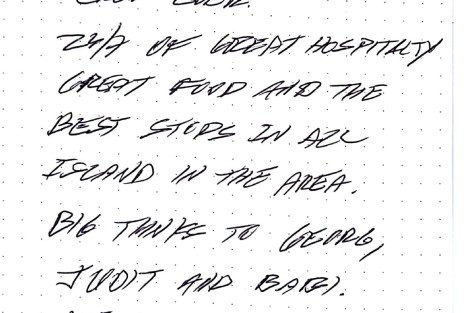 24/7 OF GREAT HOSPITALTY
GREAT FOOD AND THE
BEST STOPS IN ALL
ISLAND IN THE AREA.
BIG THNKS TO GEORG,
JUDIT AND BABI.